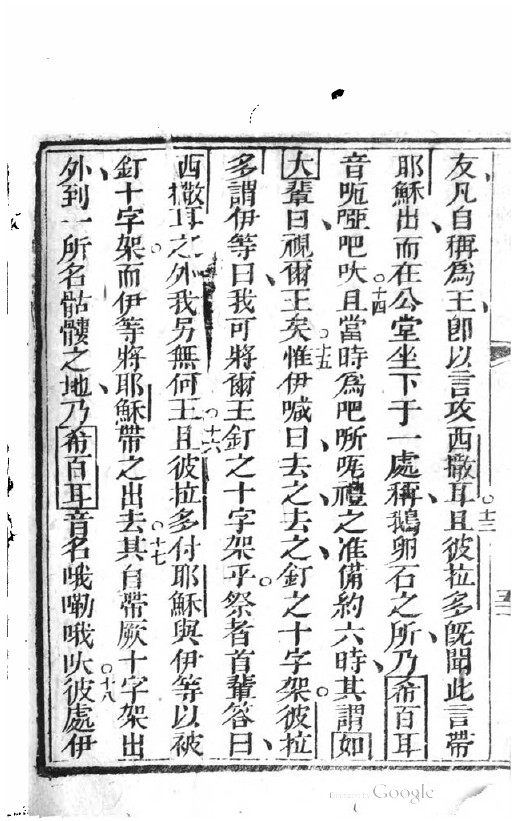 友凡自稱爲王卽以言攻西撒耳且彼拉多旣聞此言帶
十三
耶穌出而在公堂坐下于一處稱鵝卵石之所乃希百耳
十四
音呃啞吧吠且當時爲吧㗭呃禮之准備約六時其謂如
大輩曰視爾王矣惟伊喊曰去之去之釘之十字架彼拉
十五
多謂伊等曰我可將爾王釘之十字架乎祭者首輩答曰
西撒耳之外我另無何王且彼拉多付耶穌與伊等以被
十六
釘十字架而伊等將耶穌帶之出去其自帶厥十字架出
十七
外到一所名骷髏之地乃希百耳音名哦嘞哦吠彼處伊
十八
Digitized by Google